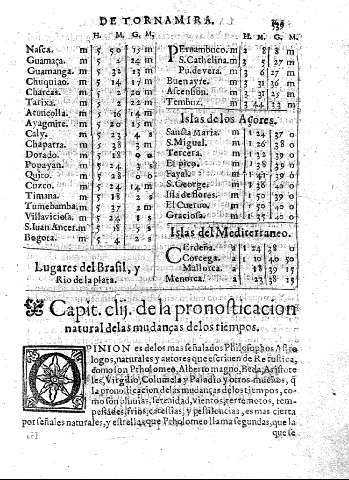 DE TORNAMIRA.
H. M. G. M.
Nasca. m 5 50 15 m
Guamaça. m 5 2 24 m
Guamanga. m 5 32 13 m
Chuquiao. m 5 14 17 m
Charcas. m 5 2 20 m
Tarixa. m 5 2 22 m
Atuncolla. m 5 16 14 m
Ayagmire. m 5 20 15 m
Caly. m 5 23 4 s
Chaparra. m 5 38 3 m
Dorado. m 5 18 0 0
Popayan. m 5 24 3 s
Quito. m 5 28 0 0
Cuzco. m 5 24 14 m
Timana. m 5 18 2 s
Tumebamba. m 5 37 2 m
Villaviciosa. m 5 24 1 s
S. Iuan Ancer. m 5 18 5 s
Bogota. m 5 4 2 s
Lugares del Brasil, y
Rio de la plata.
H. M. G. M.
Pernambuco. m 2 8 8 m
S. Cathelina. m 3 5 27 m
Pu. de vera. m 3 6 27 m
Buenayre. m 3 31 36 m
Ascension. m 3 31 25 m
Tembuz. m 3 44 23 m
Islas de los Açores.
Sancta Maria. m 1 24 37 0
S. Miguel. m 1 26 38 0
Tercera. m 1 32 39 0
El pico. m 1 38 39 0
Fayal. m 1 41 39 0
S. George. m 1 36 40 0
Isla de flores. m 1 50 39 0
El Cueruo. m 1 50 40 0
Graciosa. m 1 35 40 0
Islas del Mediterraneo.
Cerdeña. a 1 24 38 0
Corcega. a 1 10 40 50
Mallorca. a 18 39 15
Menorca. a 23 38 15
Capit. clij. de la pronosticacion
natural de las mudanças de los tiempos.
OPINION es de los mas señalados Philosophos Astro
logos, naturales y autores que escriuen de Re rustica,
como son Ptholomeo, Alberto magno, Beda, Aristote
les, Virgilio, Columela y Paladio y otros muchos, q̃
la pronosticacion de las mudanças de los tiempos, co-
mo son lluuias, serenidad, vientos, terremotos, tem-
pestades, frios, carestias, y pestilencias, es mas cierta
por señales naturales, y estrellas, que Ptholomeo llama segundas, que la
que se